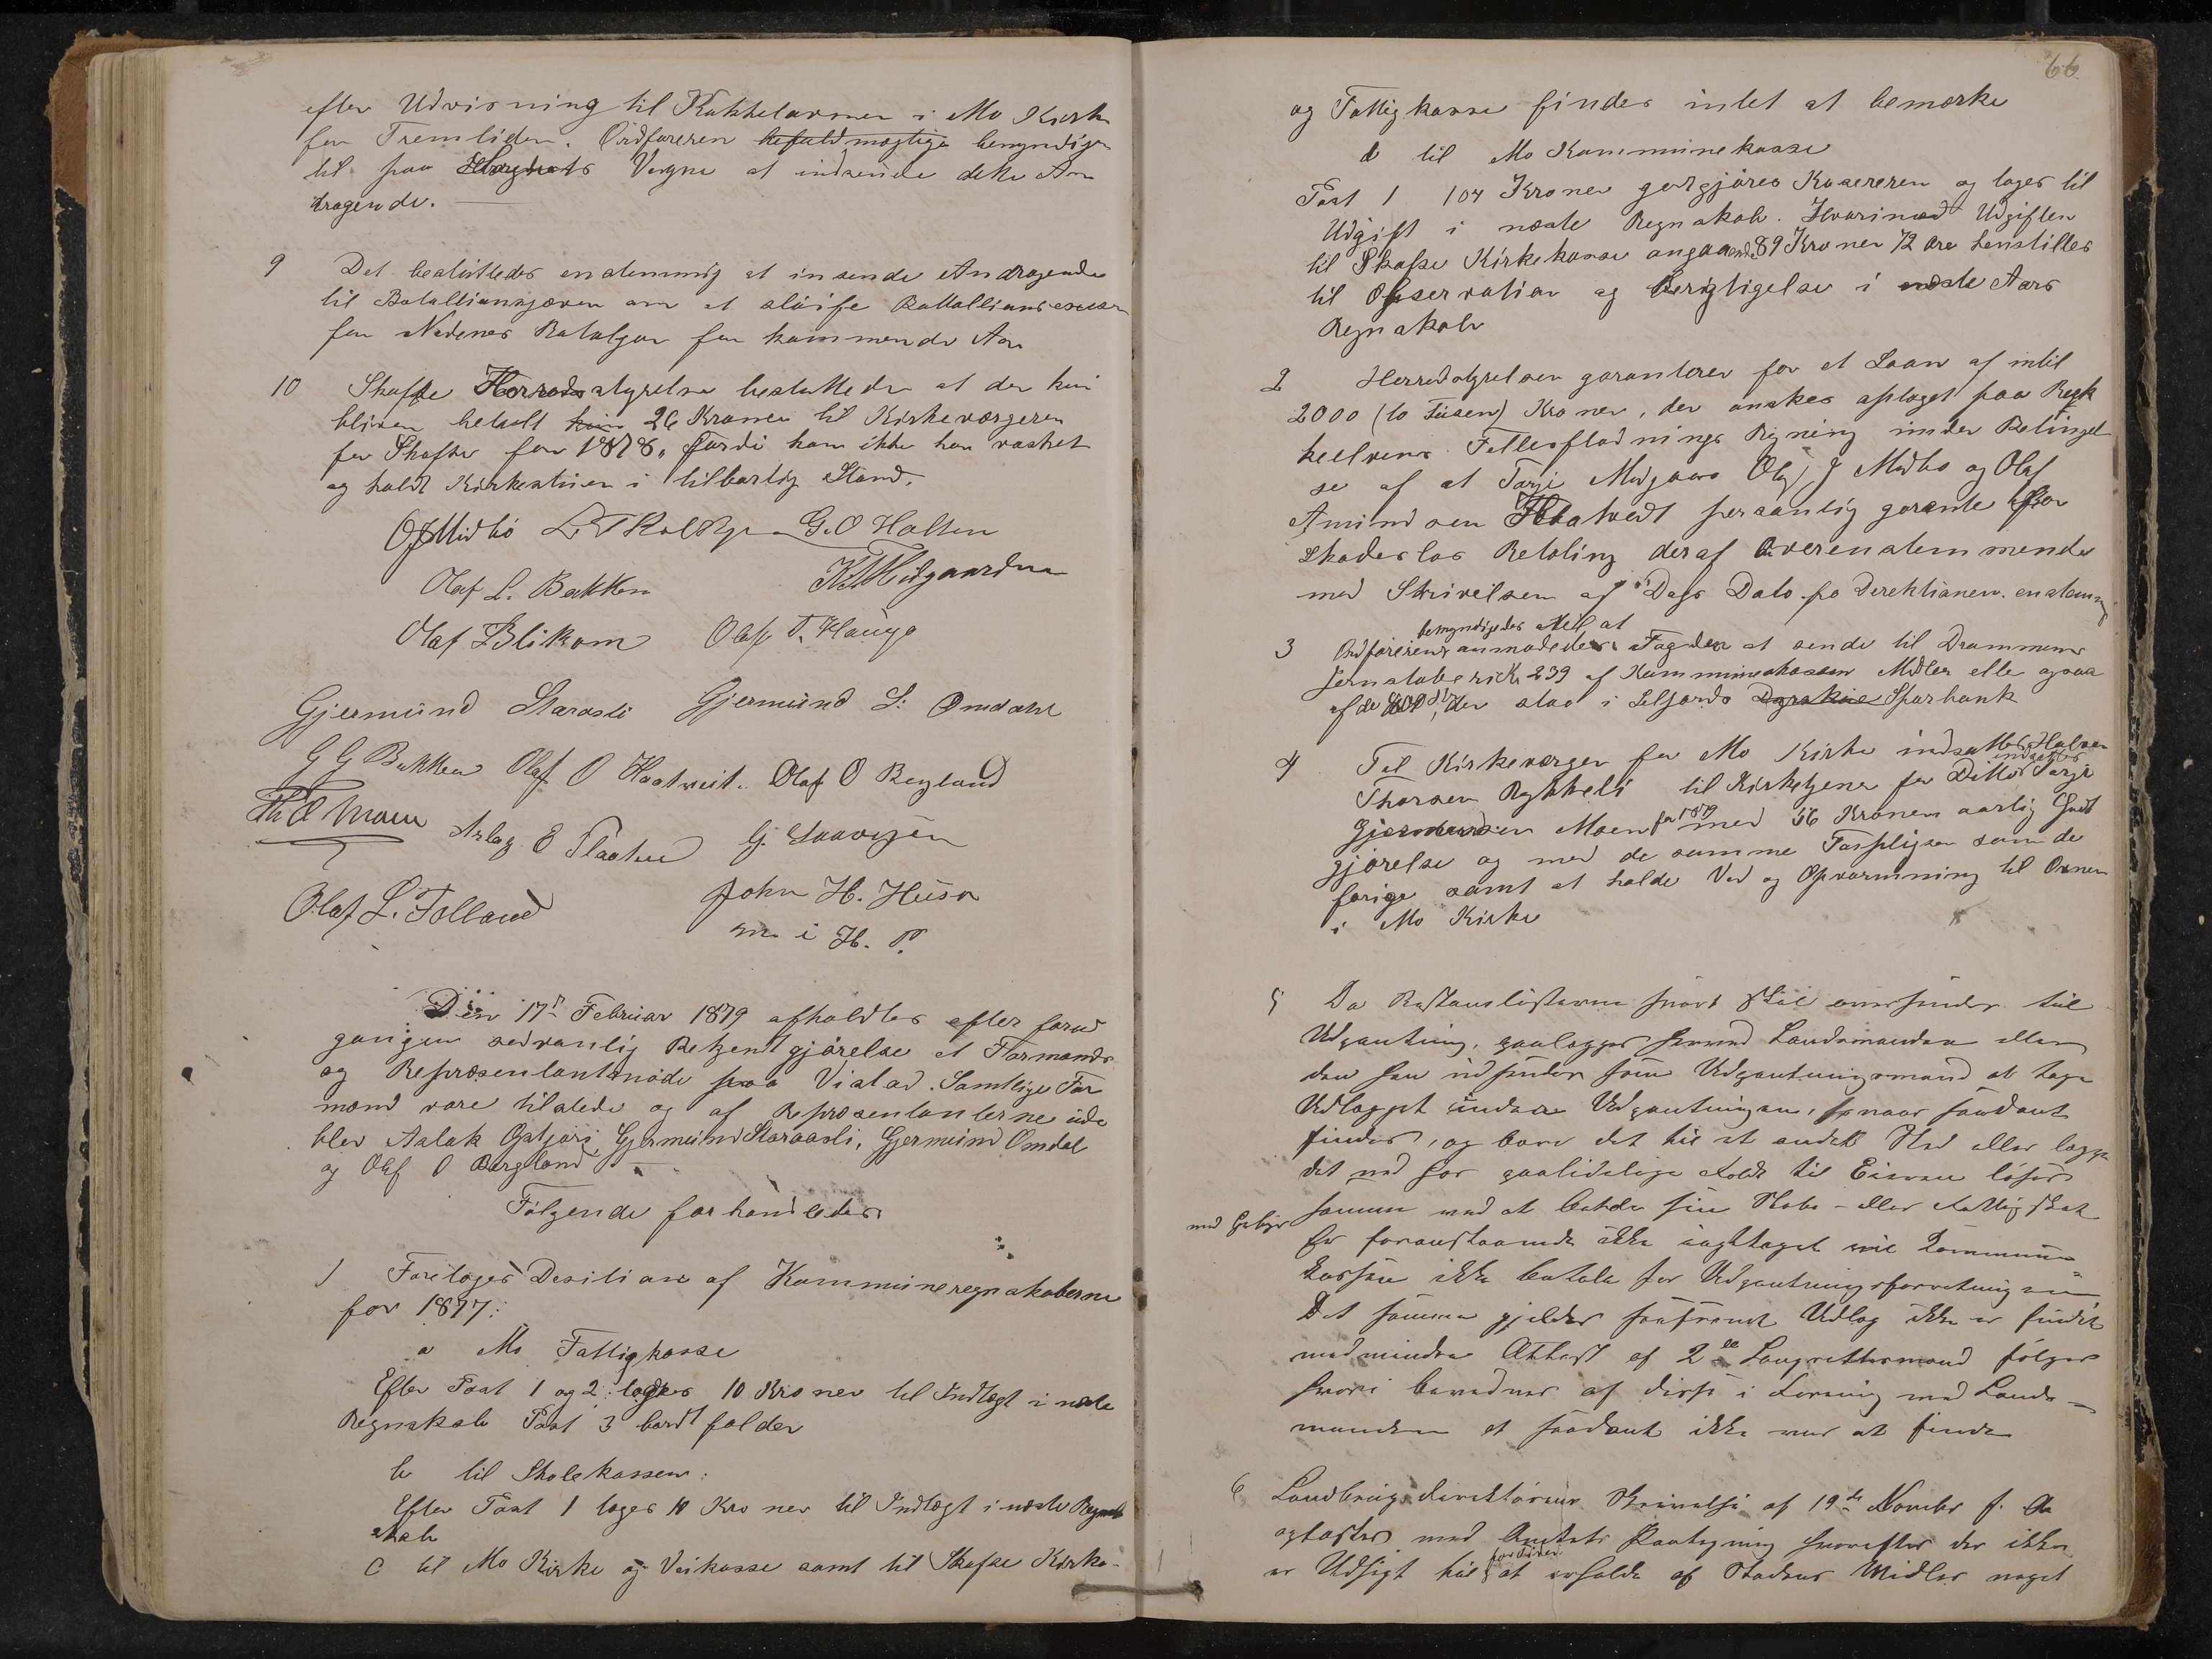 efter Udvisning til Kakkelovnen i Mo Kirke
for Fremtiden. Ordføreren befuldmægtige bemyndiges
til paa Vegne at indsende dette An
dragende.
9 Det besluttedes enstemmig at insende Andragende
til Batallionsjæven om at sløife Batallions
for Nedenes Batalgon for kommende Aar
10 Skafse Herredsstyrelse besluttede at der kun
bliver betalt kun 26 Kroner til Kirkeværgeren
for Skafse for 1878, fordi han ikke har vasket
og holdt Kirkestuen i tilbørlig Stand.
O J Midbö G. O Holten
Olaf L. Bakken K. T. Midgaarden
Olaf Blikom Olaf T. Haugo
Gjermund Staraslí Gjermund S: Omdahl
G G Bakken Olaf O Haatveit. Olaf O Bergland
Th O Moen Aslag E Flaaten G. Laavegen
Olaf L. Folland John H. Huso
m. i H. P.
Den 17de Februar 1879 afholdtes efter forud
gangen sedvanlig Bekjendtgjörelse et Formands
og Repræsentantmöde paa Vistad. Samtlige For
mænd vare tilstede og af Repræsentanterne ude
blev Aslak Gjermund Staraasli, Gjermund Omdal
og Olaf O Bergland
Fölgende forhandledes
1 Foretoges Desition af Kommuneregnskaberne
for 1877:
a Mo Fattigkasse
Efter Post 1 og 2 tages 10 Kroner til Indtægt i næste
Regnskab Post 3 bortfalder
b til Skolekassen:
Efter Post 1 tages 10 Kroner til Indtægt i næste Regn
skab
c til Mo Kirke og Veikasse samt til Skafse Kirke-
66
og Fattigkasse findes intet at bemærke
d til Mo Kommunekasse
Post 1 104 Kroner godtgjöres Kasereren og tages til
Udgift i næste Regnskab. Hvorimod Udgiften
til Skafse Kirkekasse angaaende 89 Kroner 72 Øre henstilles
til Observation og Berigtigelse i næste Aars
Regnskab
2 Herredstyrelsen garanterer for et Laan af intil
2000 (to Tusen) Kroner, der önskes optaget paa
kelvens Fellesflødnings Rigning under Betingel
se af at Tarje Midgaard Olaf J Midbö og Olaf
Amundsen Haatvedt personlig garante for
skadeslös Betaling deraf Overenstemmende
med Skrivelsen af Dags Dato fra Direktionen. enstemmig
bemyndigedes til at
3 Ordföreren anmodedes Fogden at sende til Drammens
Jernstöberi Kr 239 af Kommunekassens Midler elle ogsaa
af de der staa i Seljords Sparbank
4 Til Kirkeværger for Mo Kirke indsattes Halvor
Thorsen Rykkeli til Kirketjener for Ditto indsattes Tarje
Gjermundsen Moen for 1879 med 56 Kroner aarlig Godt
gjörelse og med de samme Forpligter som de
forige samt at holde Ved og Opvarmning til Ovnen
i Mo Kirke
5 Da Restanslisterne snart skal oversendes til
Udpantning, paalægges herved Lensmanden eller
den han udsender som Udpantningsmand at tage
Udlægget under Udpantningen, saanaar saadant
findes, og bære det til et andet Sted eller lægge
det ned hos paalidelige Folk til Eieren löser
samme ved at betale sin Skole- eller Fattigskat
med Gebyr
Er foranstaaende ikke iagttaget vil Kommune-
kassen ikke betale for Udpantningsforretningen
Det samme gjelder saafremt Udlæg ikke er fundet
medmindre Attest af 2de Laugrettesmænd fölger
hvori bevidnes af disse i Forening med Lens-
manden at saadant ikke var at finde
6 Landbrugsdirektörens Skrivelse af 19de Novbr f. A
oplæstes med Amtets Paategning hvorefter der ikke
er Udsigt til for Tiden at erholde af Statens Midler noget